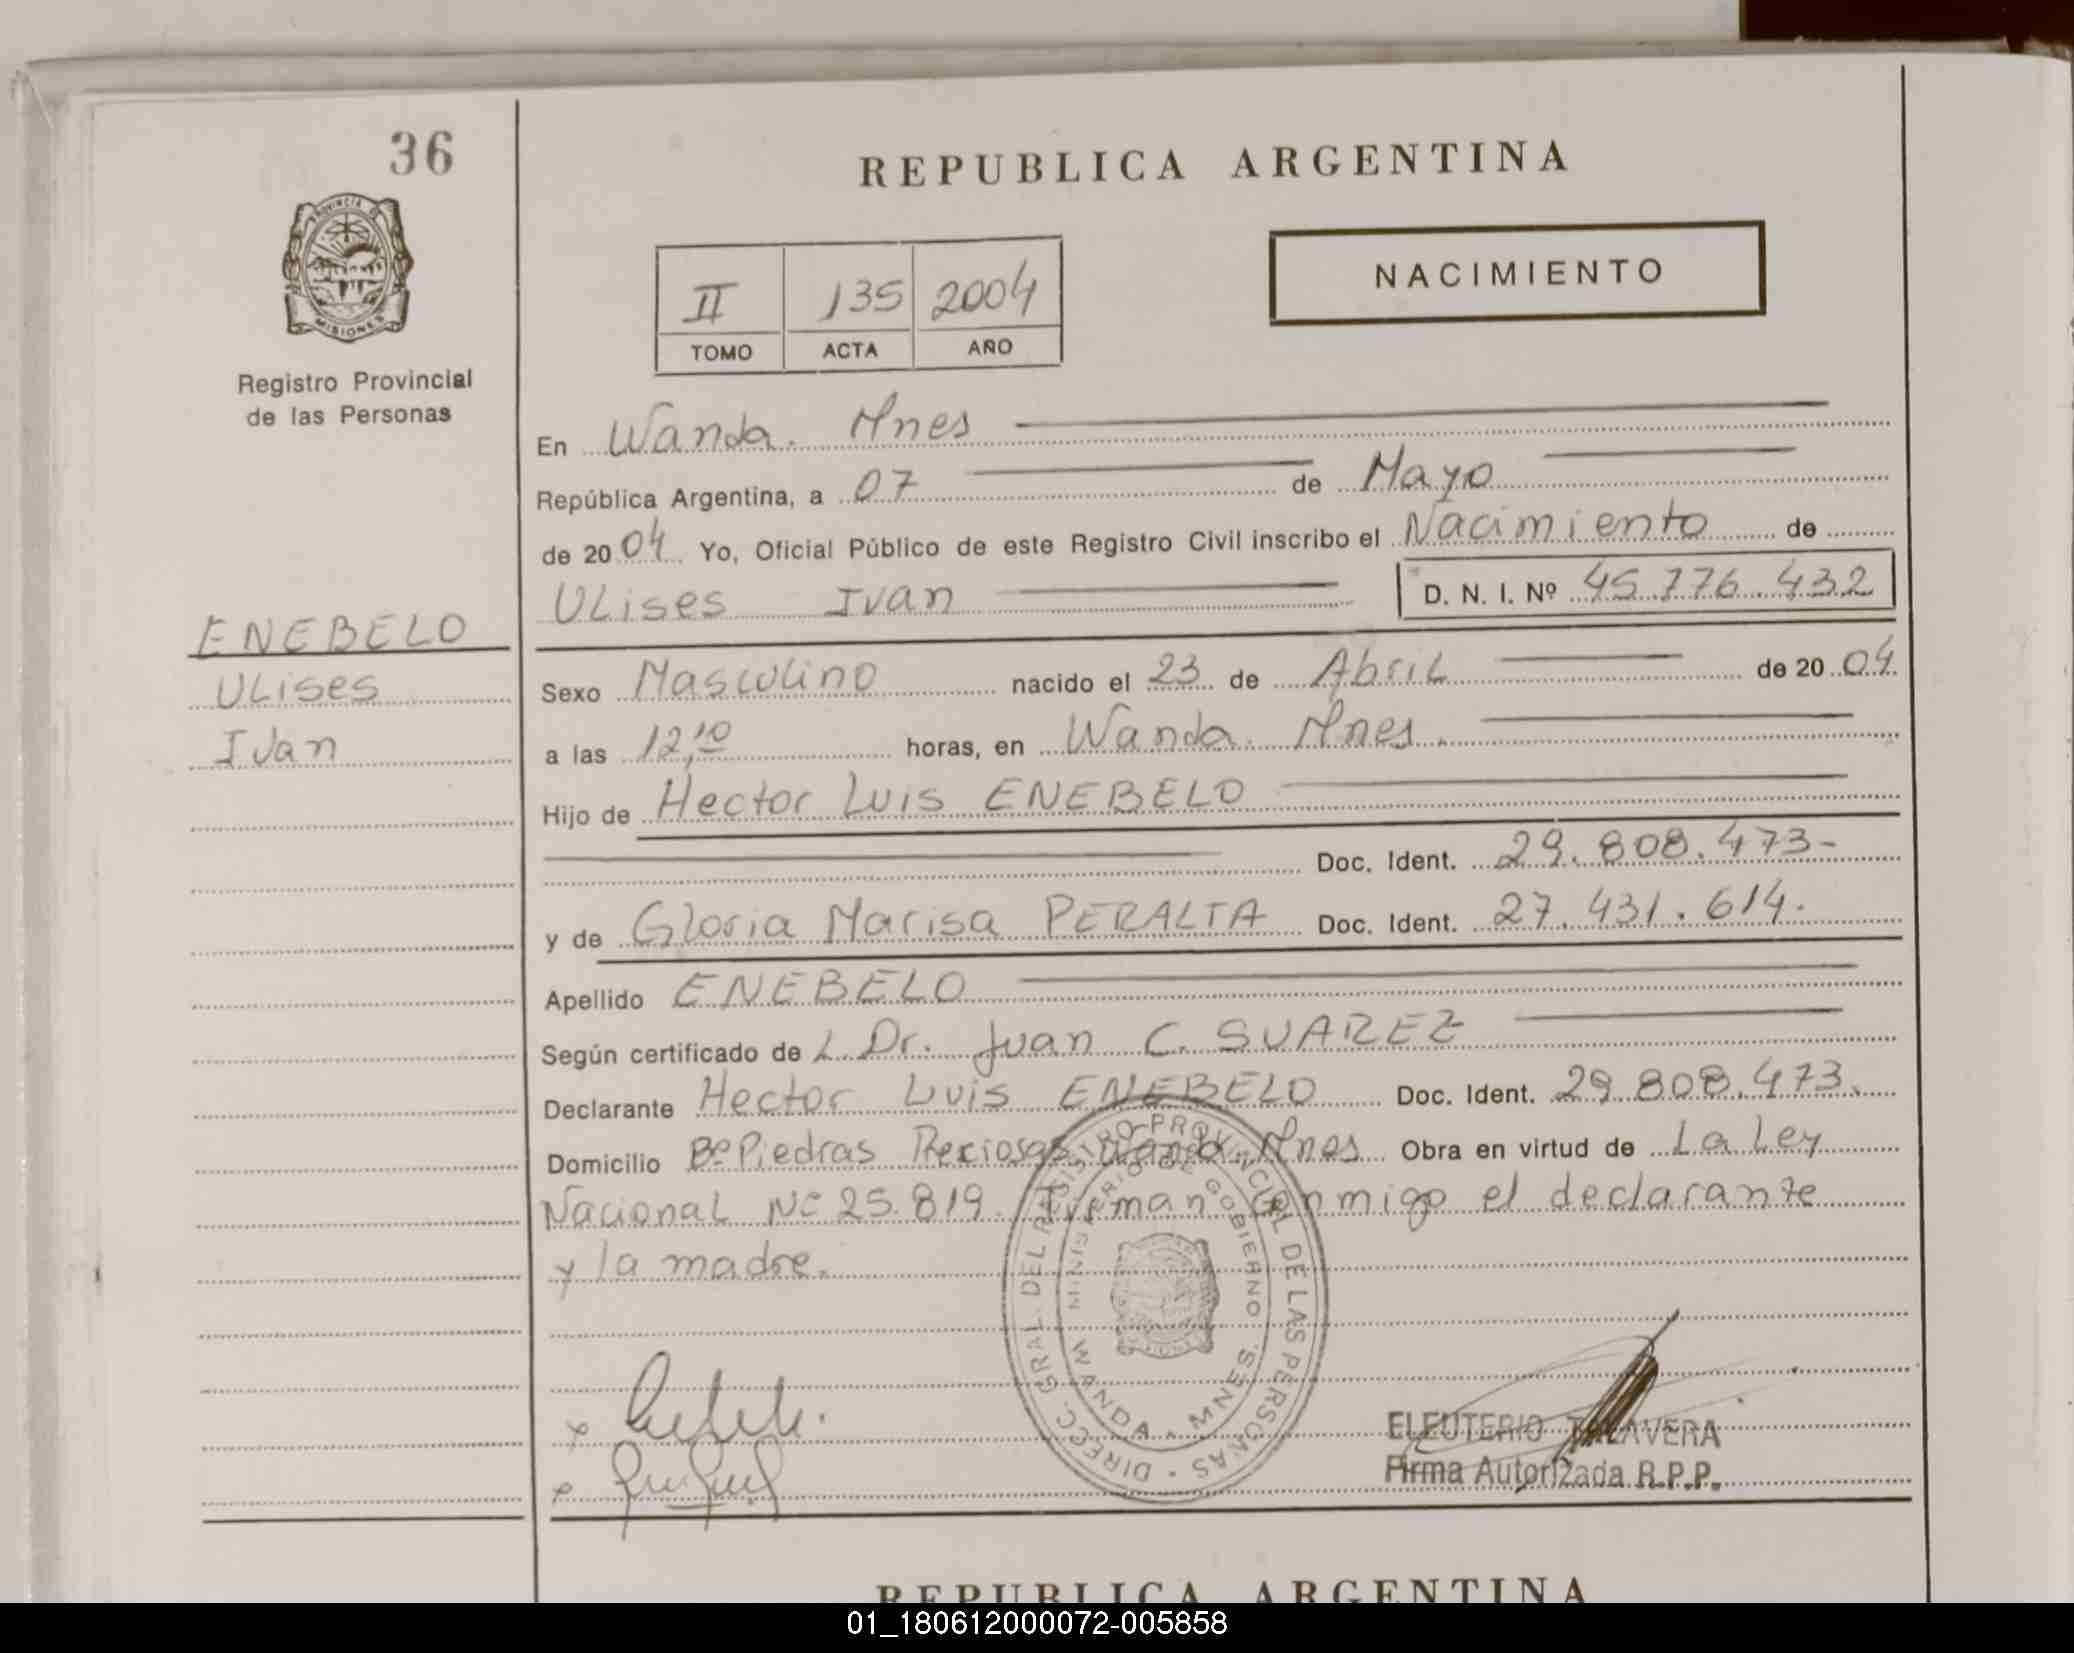 36
REPUBLICA ARGENTINA
PROVINCIA DE
MISIONES
Registro Provincial
de las Personas
NACIMIENTO
II 135 2004
TOMO ACTA AÑO
En Wanda. Mnes
República Argentina, a 07 de Mayo
de 2004 Yo, Oficial Público de este Registro Civil inscribo el Nacimiento de
Ulises Ivan D. N. I. Nº 45.776.432
ENEBELO
Ulises
Ivan
Sexo Masculino nacido el 23 de Abril de 2004
a las 12,10 horas, en Wanda. Mnes.
Hijo de Hector Luis ENEBELO
Doc. Ident. 29.808.473-
y de Gloria Marisa PERALTA Doc. Ident. 27.431.614.
Apellido ENEBELO
Según certificado de L Dr. Juan C. SUAREZ
Declarante Hector Luis ENEBELO Doc. Ident. 29.808.473.
Domicilio Bº Piedras Preciosas. Wanda. Mnes Obra en virtud de La Ley
Nacional Nº 25.819. Firman conmigo el declarante
y la madre.
DIREC. GRAL. DEL REGISTRO PROVINCIAL DE LAS PERSONAS
MINISTERIO DE GOBIERNO
WANDA - MNES.
ELEUTERIO TALAVERA
Firma Autorizada R.P.P.
REPUBLICA ARGENTINA
01_180612000072-005858